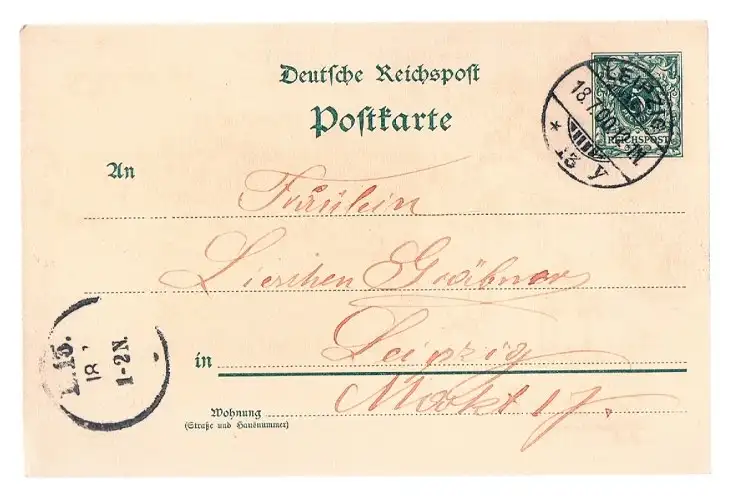 Deutsche Reichspost
Postkarte
LEIPZIG
18.7.00.
* 13
5
REICHSPOST
An
Fräulein
Lieschen Gräbner
in Leipzig
Wohnung Markt 17.
(Straße und Hausnummer)
L.13.
18
1-2N.